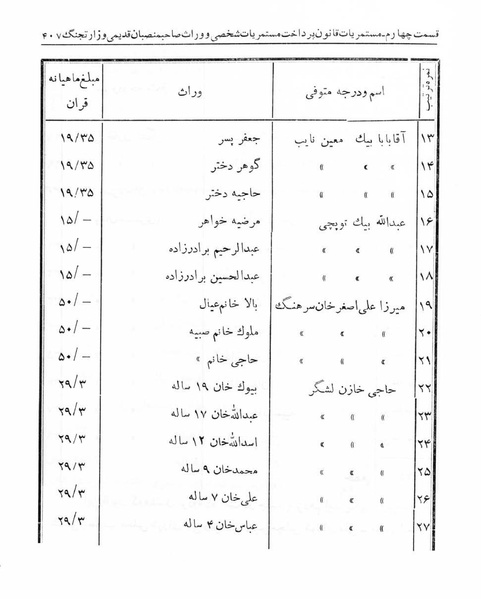 قسمت چهارم-مستمریات قانون پرداخت مستمریات شخصی و وراث صاحبمنصبان قدیمی وزارت جنگ ۴۰۷
نمره ترتیب اسم و درجه متوفی وراث مبلغ ماهیانه
قران
۱۳ آقابابا بیك معین نایب جعفر پسر ۱۹/۳۵
۱۴ » » » گوهر دختر ۱۹/۳۵
۱۵ » » » حاجیه دختر ۱۹/۳۵
۱۶ عبدالله بیك توپچی مرضیه خواهر ۱۵/-
۱۷ » » » عبدالرحیم برادرزاده ۱۵/-
۱۸ » » » عبدالحسین برادرزاده ۱۵/-
۱۹ میرزا علی اصغرخان سرهنگ بالا خانم عیال ۵۰/-
۲۰ » » » ملوك خانم صبیه ۵۰/-
۲۱ » » » حاجی خانم » ۵۰/-
۲۲ حاجی خازن لشگر بیوك خان ۱۹ ساله ۲۹/۳
۲۳ » » » عبدالله خان ۱۷ ساله ۲۹/۳
۲۴ » » » اسدالله خان ۱۲ ساله ۲۹/۳
۲۵ » » » محمدخان ۹ ساله ۲۹/۳
۲۶ » » » علی خان ۷ ساله ۲۹/۳
۲۷ » » » عباس خان ۴ ساله ۲۹/۳